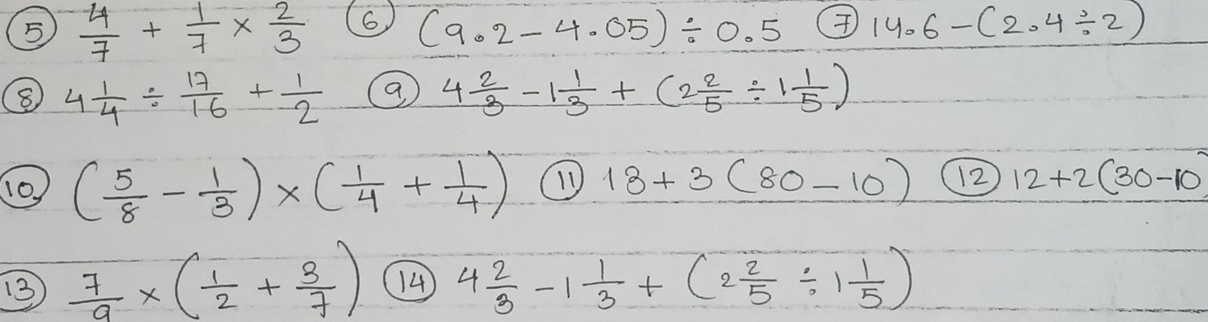 ⑤ 4/7 + 1/7 × 2/3 ⑥ (9.2 - 4.05) ÷ 0.5 ⑦ 14.6 - (2.4 ÷ 2)
⑧ 4 1/4 ÷ 17/16 + 1/2 ⑨ 4 2/3 - 1 1/3 + (2 2/5 ÷ 1 1/5)
⑩ (5/8 - 1/3) × (1/4 + 1/4) ⑪ 18 + 3 (80 - 10) ⑫ 12 + 2 (30 - 10
⑬ 7/9 × (1/2 + 3/7) ⑭ 4 2/3 - 1 1/3 + (2 2/5 ÷ 1 1/5)